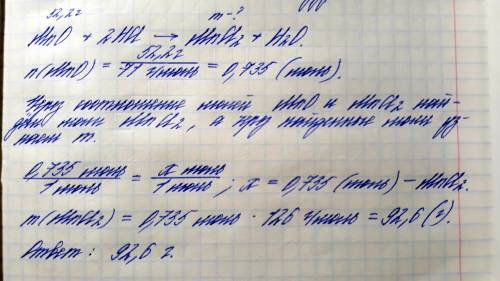 52,2г m-?
MnO + 2HCl → MnCl₂ + H₂O.
n(MnO) = 52,2г / 71 г/моль = 0,735 (моль).
Чрез соотношение молей MnO и MnCl₂ най-
дём моли MnCl₂, а чрез найденные моли уз-
наем m.
0,735 моль / 1 моль = x моль / 1 моль ; x = 0,735 (моль) – MnCl₂.
m(MnCl₂) = 0,735 моль · 126 г/моль = 92,6 (г).
Ответ: 92,6 г.